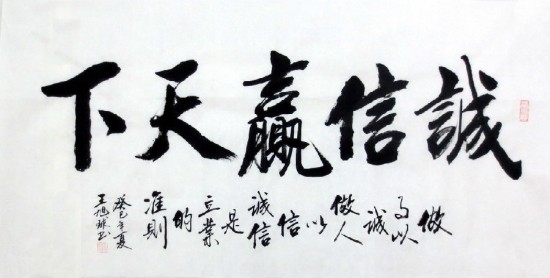 誠信贏天下
做事以誠做人以信誠信是立業的准則
癸巳年夏
王旭